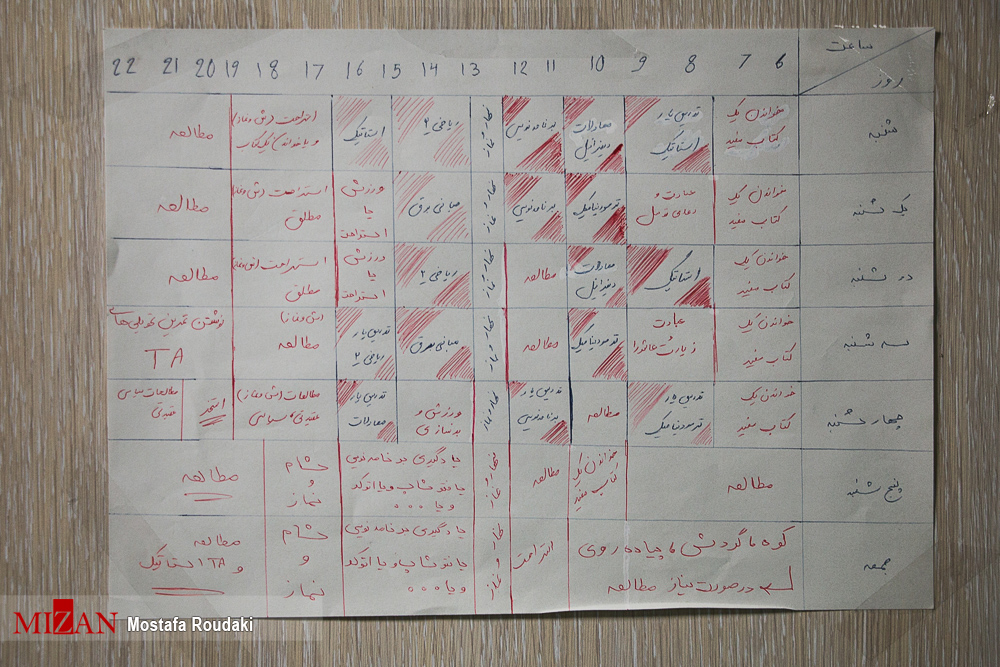 ساعت
روز
6 7 8 9 10 11 12 13 14 15 16 17 18 19 20 21 22
شنبه
خواندن یک
کتاب مفید
تدریس یار
استاتیک
معادلات
دیفرانیل
برنامه نویسی
نهار و نماز
ریاضی ۲
استاتیک
استراحت (شام و نماز)
و یا خواندن یک کتاب
مطالعه
یک شنبه
خواندن یک
کتاب مفید
عبادت و
دعای توسل
ترمودینامیک
برنامه نویسی
نهار و نماز
مبانی برق
ورزش
یا
استراحت
استراحت (شام و نماز)
مطلق
مطالعه
دو شنبه
خواندن یک
کتاب مفید
استاتیک
معادلات
دیفرانیل
مطالعه
نهار و نماز
ریاضی ۲
ورزش
یا
استراحت
استراحت (شام و نماز)
مطلق
مطالعه
سه شنبه
خواندن یک
کتاب مفید
عبادت
زیارت عاشورا
ترمودینامیک
مطالعه
نهار و نماز
مبانی برق
تدریس یار
ریاضی ۲
(شام و نماز)
مطالعه
نوشتن تمرین تحویلی های
TA
چهار شنبه
خواندن یک
کتاب مفید
تدریس یار
ترمودینامیک
مطالعه
تدریس یار
برنامه نویسی
نهار و نماز
ورزش و
بدنسازی
تدریس یار
معادلات
مطالعات (شام و نماز)
عقیدتی، سیاسی
استخر
مطالعات سیاسی
عقیدتی
پنج شنبه
مطالعه
خواندن یک
کتاب مفید
مطالعه
نهار و نماز
یادگیری برنامه نویسی
یا فتوشاپ و یا اتوکد
و یا ...
شام
و
نماز
مطالعه
جمعه
کوه یا گردش یا پیاده روی
در صورت نیاز مطالعه
استراحت
نهار و نماز
یادگیری برنامه نویسی
یا فتوشاپ و یا اتوکد
و یا ...
شام
و
نماز
مطالعه
و TA استاتیک
MIZAN
Mostafa Roudaki